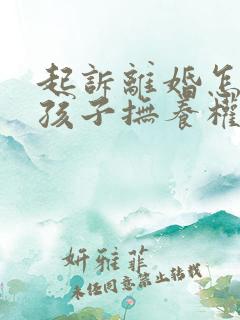 起訴離婚怎
孩子撫養權
妍雅菲
未经同意禁止转载